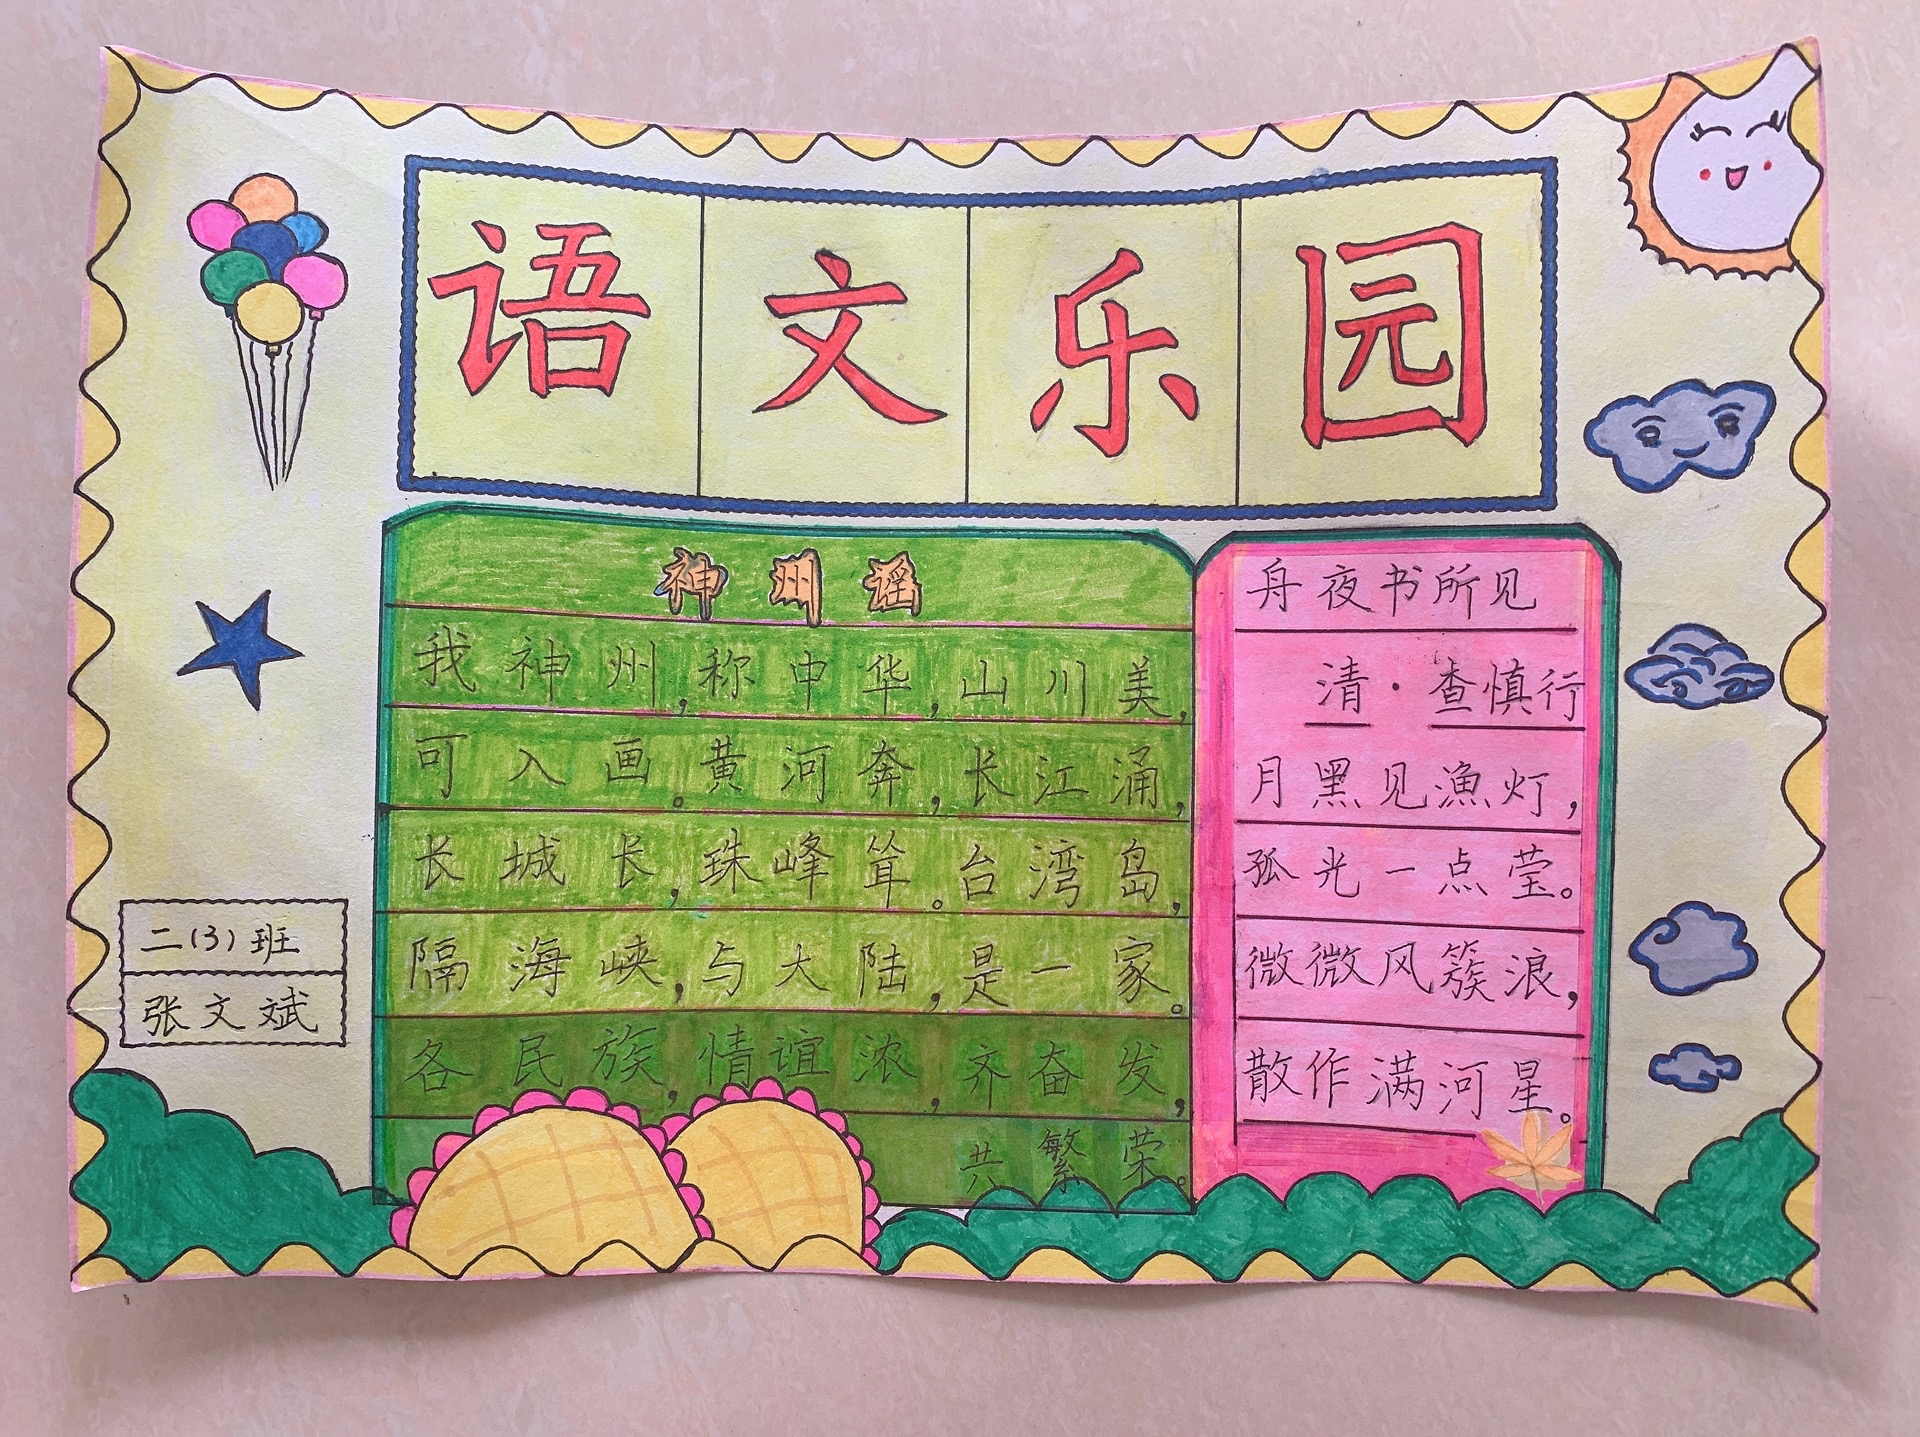 语文乐园
神州谣
我神州,称中华,山川美,
可入画。黄河奔,长江涌,
长城长,珠峰耸。台湾岛,
隔海峡,与大陆,是一家。
各民族,情谊浓,齐奋发,
共繁荣。
舟夜书所见
清·查慎行
月黑见漁灯,
孤光一点莹。
微微风簇浪,
散作满河星。
二(3)班
张文斌